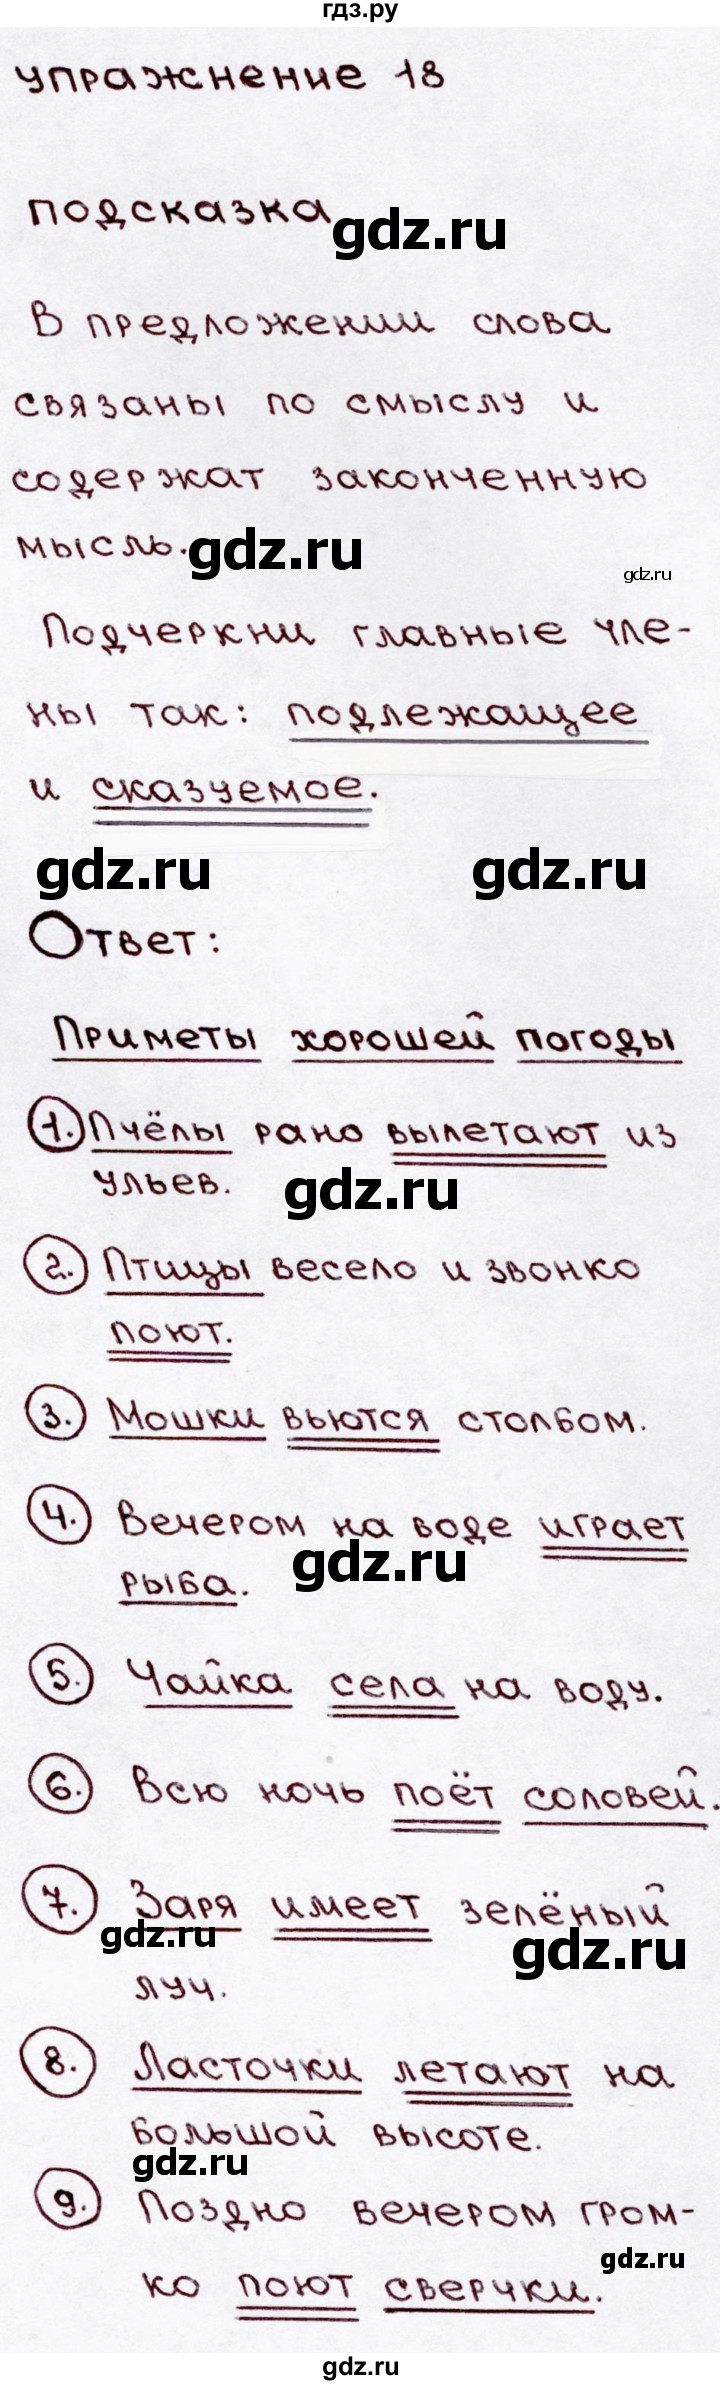 гдз.ру
упражнение 18
подсказка
gdz.ru
В предложении слова
связаны по смыслу и
содержат законченную
мысль.
gdz.ru
gdz.ru
Подчеркни главные чле-
ны так: подлежащее
и сказуемое.
gdz.ru gdz.ru
Ответ:
Приметы хорошей погоды
1. Пчёлы рано вылетают из
ульев.
gdz.ru
2. Птицы весело и звонко
поют.
3. Мошки вьются столбом.
4. Вечером на воде играет
рыба.
gdz.ru
5. Чайка села на воду.
6. Всю ночь поёт соловей.
7. Заря имеет зелёный
gdz.ru gdz.ru
луч.
8. Ласточки летают на
большой высоте.
gdz.ru
9. Поздно вечером гром-
gdz.ru
ко поют сверчки.
gdz.ru